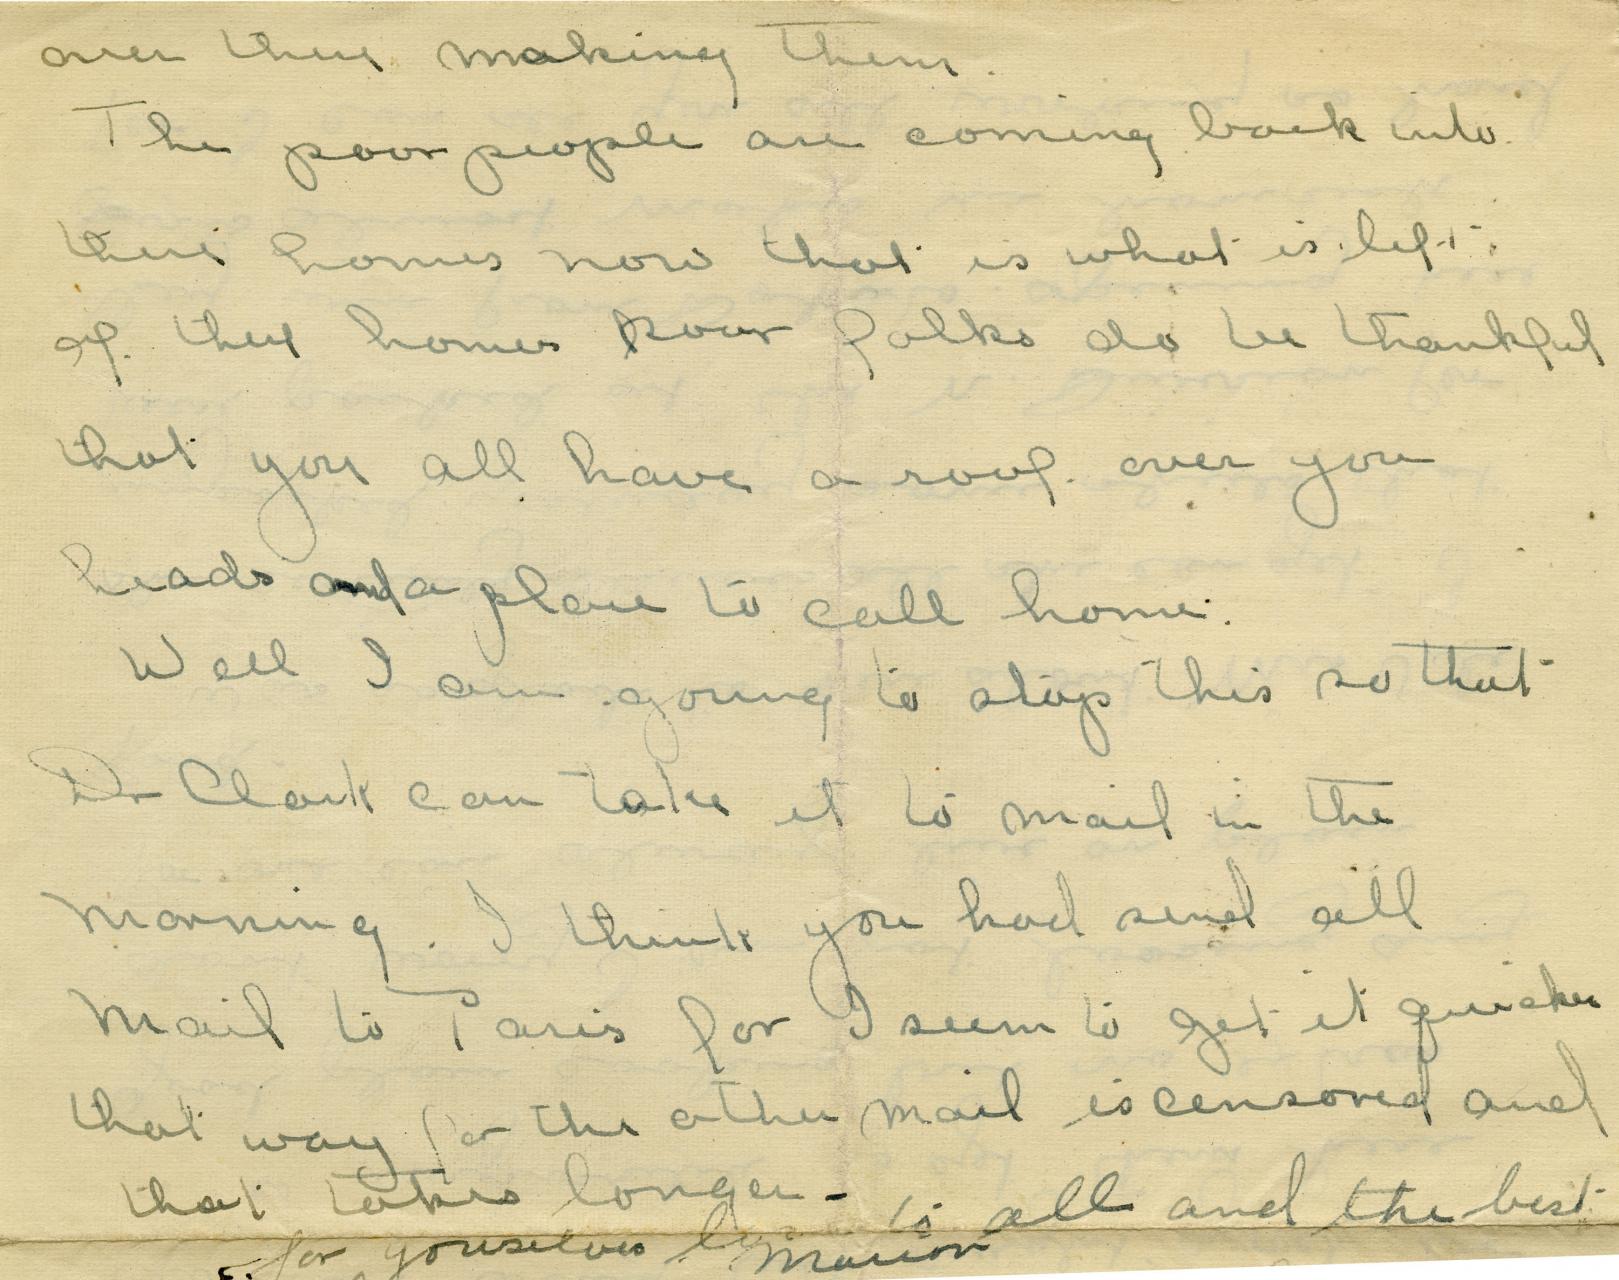 over there making them.
The poor people are coming back into
their homes now that is what is left
of they homes poor folks do be thankful
that you all have a roof over you
heads and a place to call home.
Well I am going to stop this so that
Dr Clark can take it to mail in the
morning. I think you had send all
mail to Paris for I seem to get it quicker
that way for the other mail is censored and
that takes longer - to all and the best
for yourselves Marion